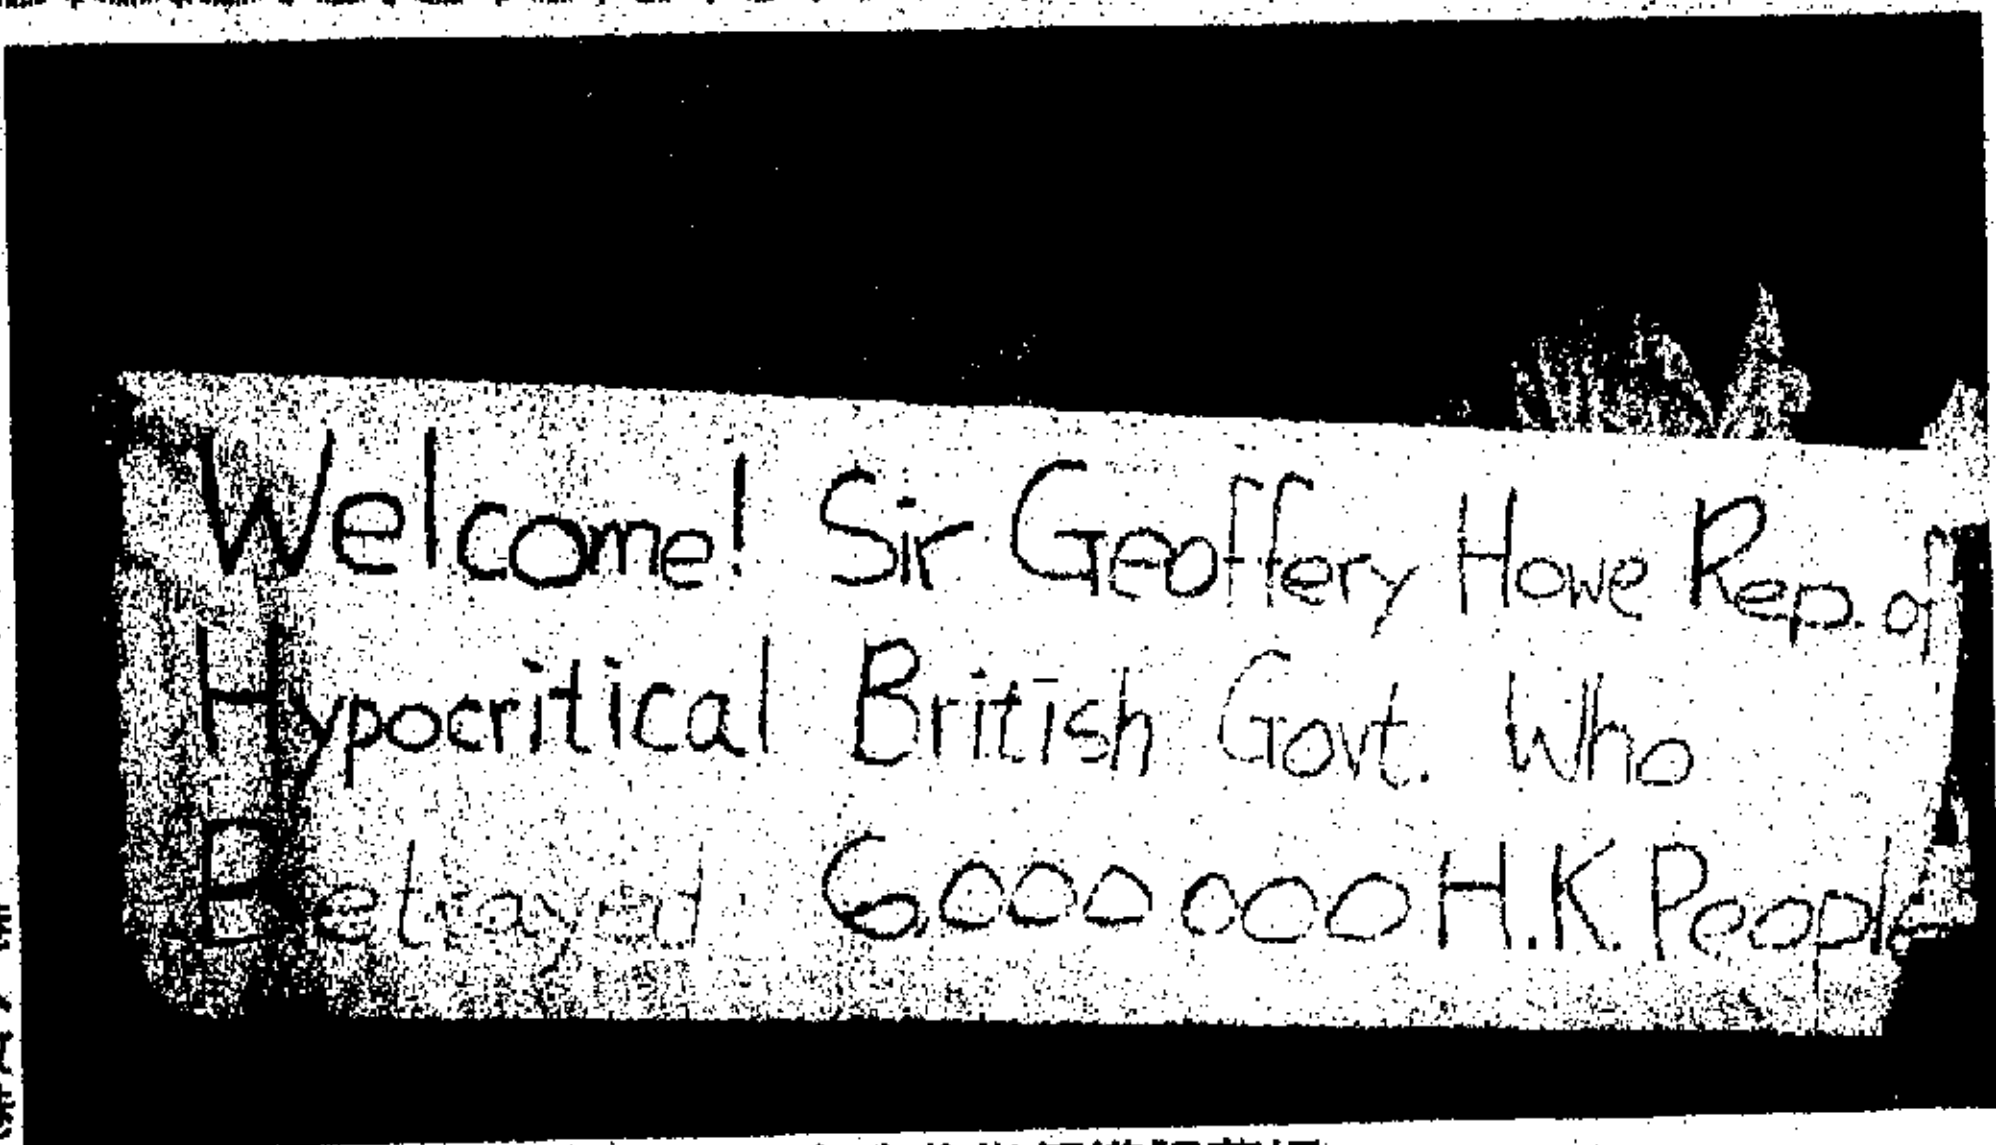 Welcome! Sir Geoffery Howe Rep. of
Hypocritical British Govt. Who
Betrayed 6,000 000 H.K. People